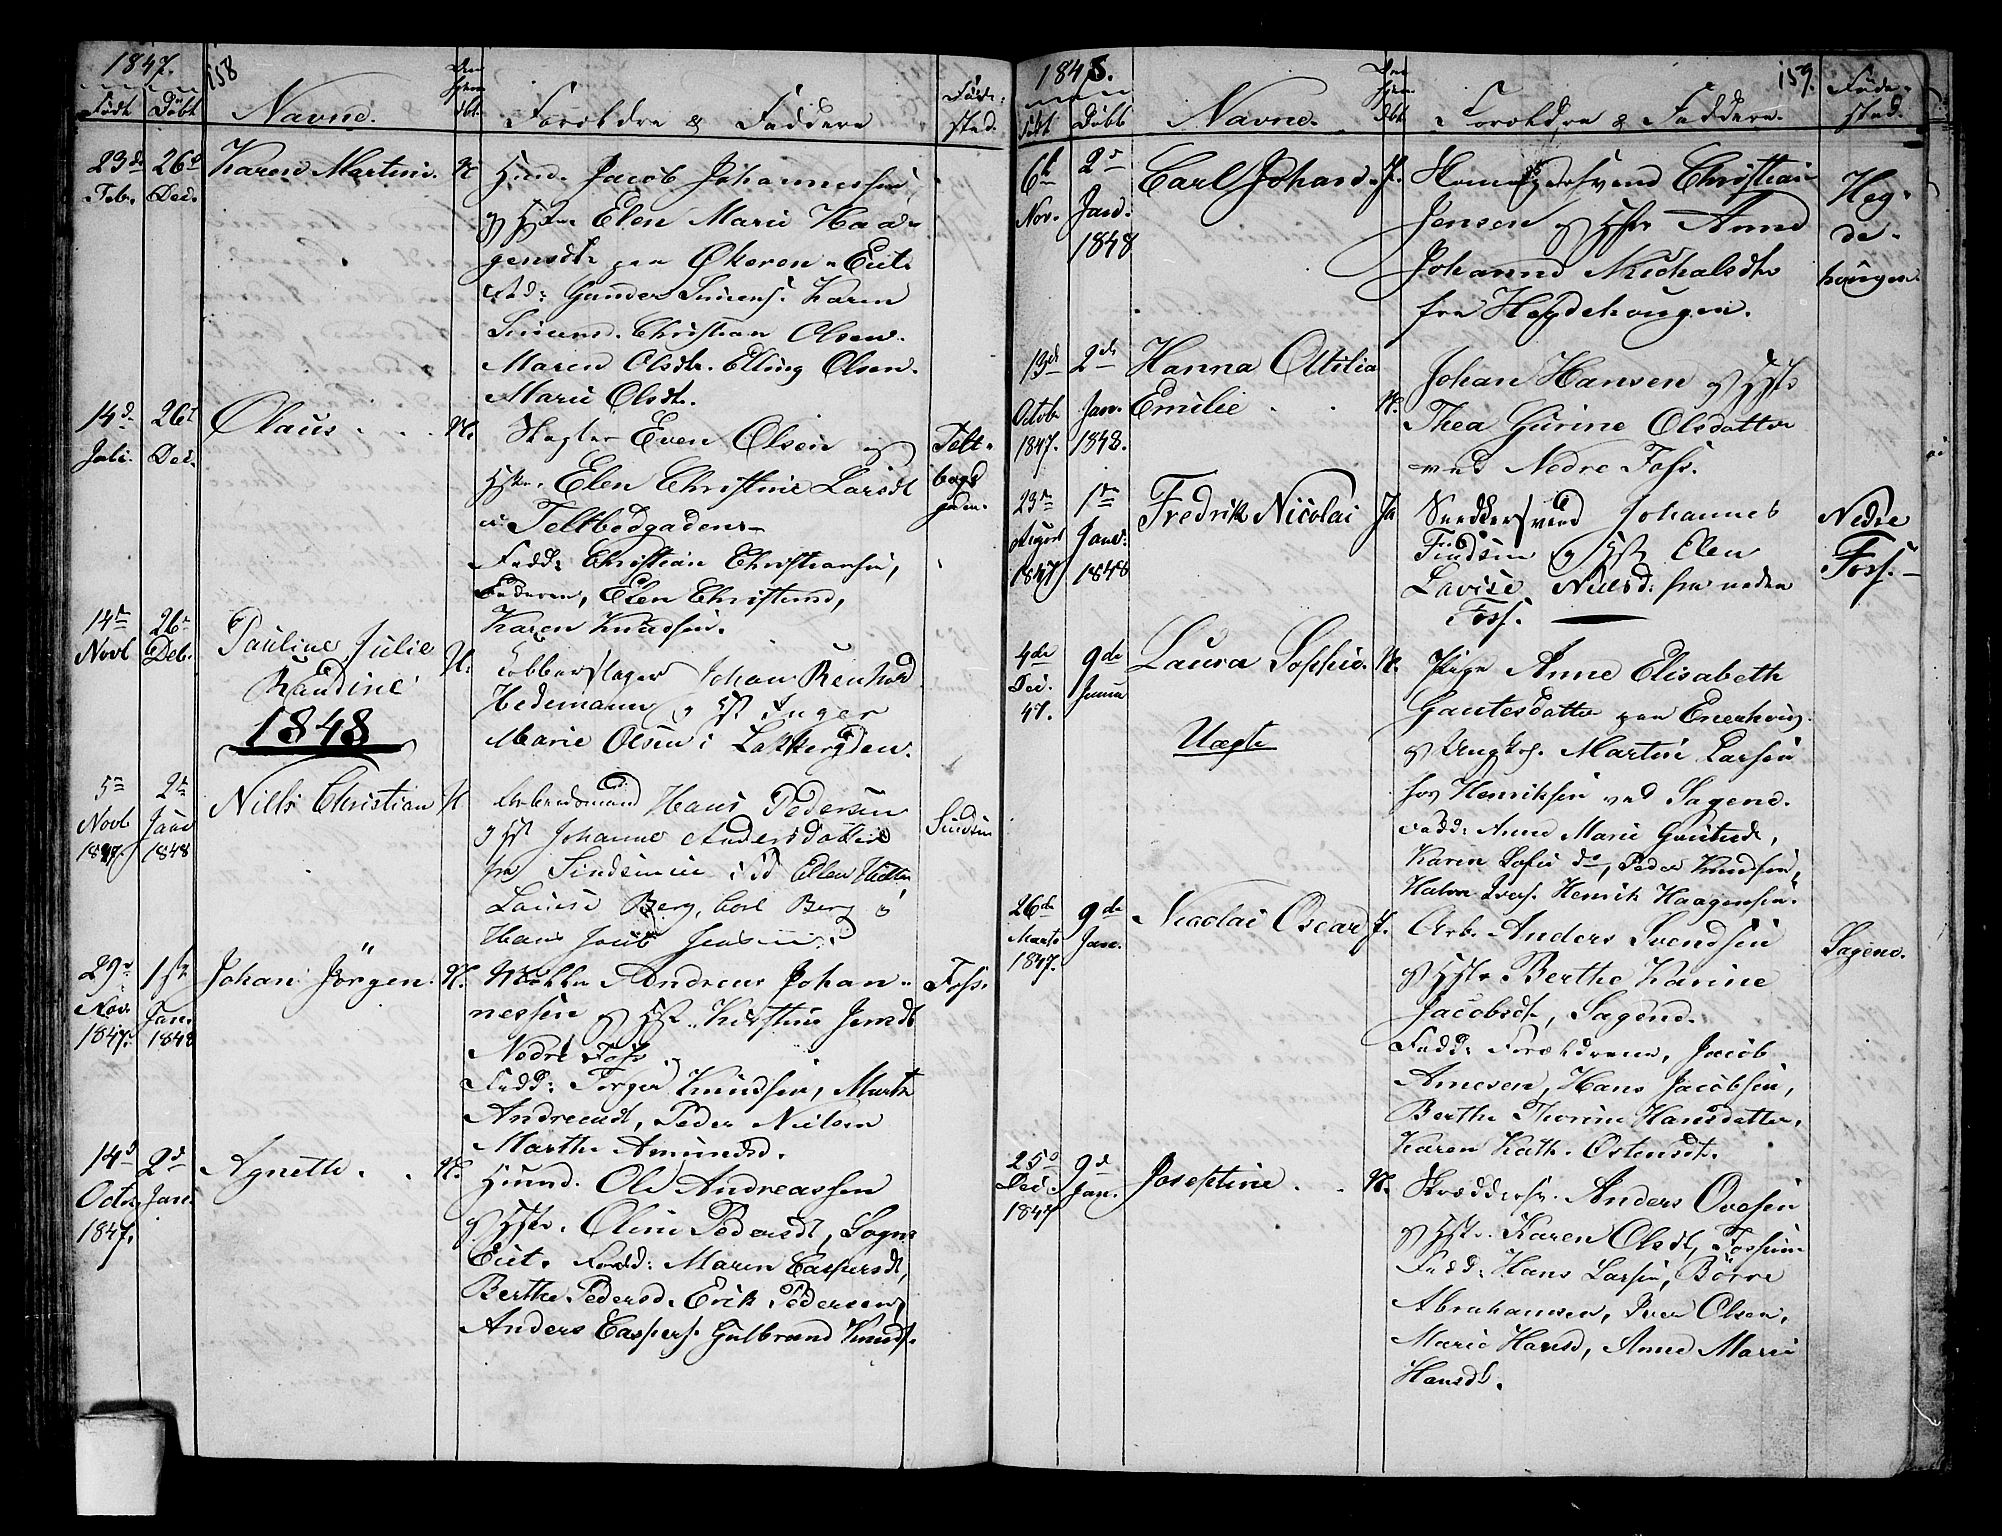 1847.
158
Født
Døbt
Navne.
Den
hjem
dbt.
Forældre & Faddere
Føde-
sted.
23d
Feb.
26d
Dec.
Karen Martine.
N
Huusm. Jacob Johannessen
og Hstr. Elen Marie Haa-
gensdtr. paa Økeren-Eiet.
Fad: Gunder Simens. Karen
Simensd. Christian Olsen.
Maren Olsdtr. Elling Olsen.
Marie Olsdtr.
14d
Juli.
26d
Dec.
Olaus . . .
N.
Slagter Even Olsen og
Hstr. Elen Christine Larsdt
i Teltbodgaden
Fadd: Christian Christiansen,
Faderen, Elen Christensd,
Karen Knudsen.
Telt-
bogd
gaden.
14de
Novb
26de
Deb.
Pauline Julie
Randine
N.
Kobberslager Johan Renhord
Hedemann og Hst Inger
Marie Olsen i Lakkergden.
1848
5te
Novb
1847.
2de
Janu
1848
Niels Christian
N
Arbeidsmand Hans Pedersen
og Hst Johanne Andersdatter
fra Sindsenie
Louise Berg, Carl Berg
Hans Jacob Jensen
Sindsen
29de
Nov.
1847.
1ste
Jan.
1848
Johan Jörgen.
N.
Møller Andreas Johan-
nessen og Hstr. Kirstine Jensdt
Nedre Foss
Fadd: Torger Knudsen, Marth
Andreasdt, Peder Nielsen
Marthe Amundsd.
Foss.
14d
Octor
1847.
2d
Jan.
Agnethe . .
N.
Huusmd. Ole Andreassen
og Hstr. Oline Pedersdt, Sogns
Eiet. Fadd: Maren Caspersdt,
Berthe Pedersd. Erik Pedersen,
Anders Caspers. Gulbrand Knuds.
1848.
159.
Født
Døbt
Navne.
Den
hjem
dbt.
Forældre & Faddere.
Føde-
sted.
6t
Nov.
2d
Jan.
1848
Carl Johan.
J.
Skomagersvend Christian
Jensen og Hstr Anne
Johanne Michalsdtr
fra Hegdehougen.
Heg-
de-
hougen.
13de
Octob.
1847.
2de
Jan.
1848.
Hanna Otilia
Emilie . .
N.
Johan Hansen og Hstr
Thea Gurine Olsdatter
ved Nedre Foss.
23de
August
1847
1ste
Janu.
1848
Fredrik Nicolai
Ja
Snedkersvend Johannes
Findsen og Hstr Elen
Lovise Nielsd. fra neden
Foss.
Nedre
Foss.
4de
Dec.
47.
9de
Janua
Laura Sophie.
N.
Uægte
Pige Anne Elisabeth
Gautesdatter paa Enerhoug.
og Ungk. Martin Larsen
hos Henriksen ved Sagene.
Fadd: Anne Marie Gautesd,
Karen Sofie do, Peder Knudsen,
Halvor Ivers. Henrik Haagensen.
26de
Marts
1847.
9de
Jan.
Nicolai Oscar
J.
Arb. Anders Svendsen
og Hstr Berthe Karine
Jacobsdt, Sagene.
Fadd: Forældrene, Jacob
Arnesen, Hans Jacobsen,
Berthe Thorine Hansdatter,
Karen Kath. Ostensdt.
Sagene.
25d
Dec.
1847
9d
Jan.
Josephine . .
N.
Skræddersv. Anders Ovesen
og Hstr. Karen Olsdt, Fossum
Fadd: Hans Larsen, Börre
Abrahamsen, Iver Olsen,
Marie Hansd, Anne Marie
Hansdt.